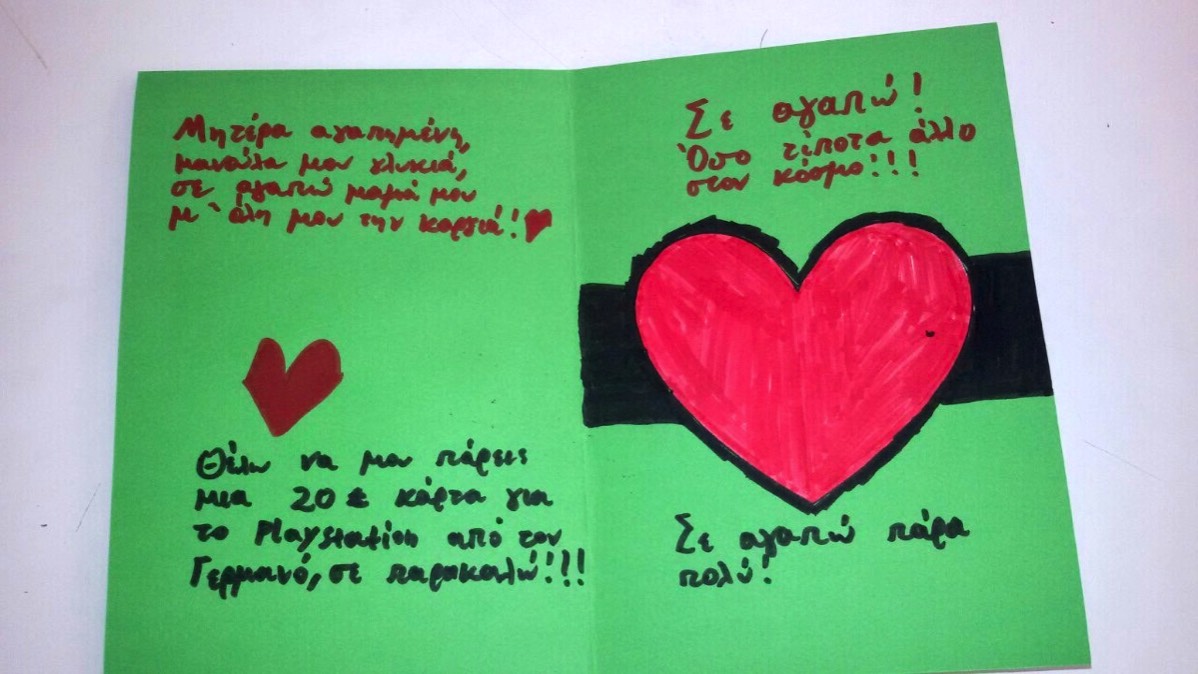 Μητέρα αγαπημένη,
μανούλα μου γλυκιά,
σε αγαπώ μαμά μου
μ' όλη μου την καρδιά!
Θέλω να μου πάρεις
μια 20 € κάρτα για
το Playstation από τον
Γερμανό, σε παρακαλώ!!!
Σε αγαπώ!
Όσο τίποτα άλλο
στον κόσμο!!!
Σε αγαπώ πάρα
πολύ!